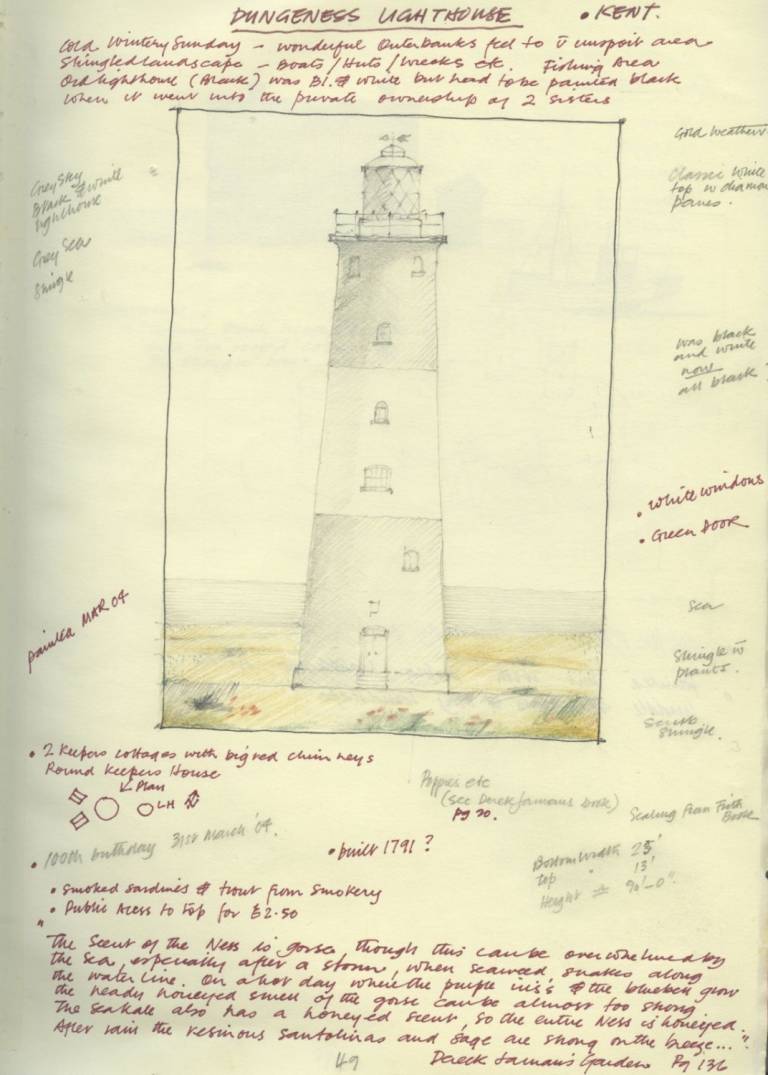 DUNGENESS LIGHTHOUSE • KENT.
Cold Wintery Sunday – wonderful Outerbanks feel to v̄ unspoilt area
Shingled landscape – Boats/Huts/Wrecks etc. Fishing Area
Old lighthouse (Black) was Bl. & white but had to be painted black
when it went into the private ownership of 2 sisters
Grey Sky
Black & white
lighthouse
Grey Sea
Shingle
Cold Weather
Classic White
top w diamond
panes.
was black
and white
now
all black
• White windows
• Green Door
Painted MAR 04
Sea
Shingle w̄
plants.
Scrub
Shingle.
• 2 Keepers cottages with big red chimneys
Round Keepers House
Plan
LH
Poppies etc
(see Derek Jarmans book)
Pg 70.
Scaling From Frith
Book
• 100th birthday 31st March '04.
• built 1791 ?
Bottom Width 25'
top " 13'
Height ± 90'-0".
• Smoked sardines & trout from Smokery
• Public Acess to top for £2.50
"The Scent of the Ness is gorse, though this can be overwhelmed by
the sea, especially after a storm, when seaweed snakes along
the water line. On a hot day when the purple iris's & the bluebell grow
the heady honeyed smell of the gorse can be almost too strong
The seakale also has a honeyed scent, so the entire Ness is honeyed.
After rain the resinous santolinas and sage are strong on the breeze..."
49 Dereck Jarman's Garden Pg 136